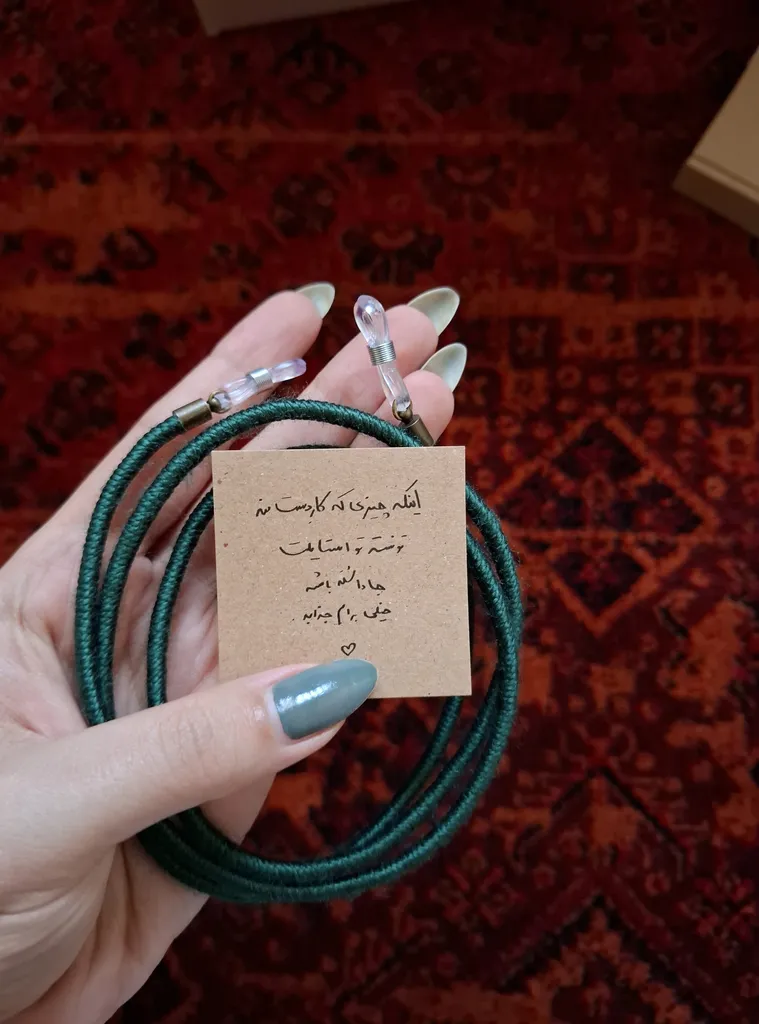 اینکه چیزی که کار دست منه
تونسته تو استایلت
جا داشته باشه
خیلی برام جذابه
♡